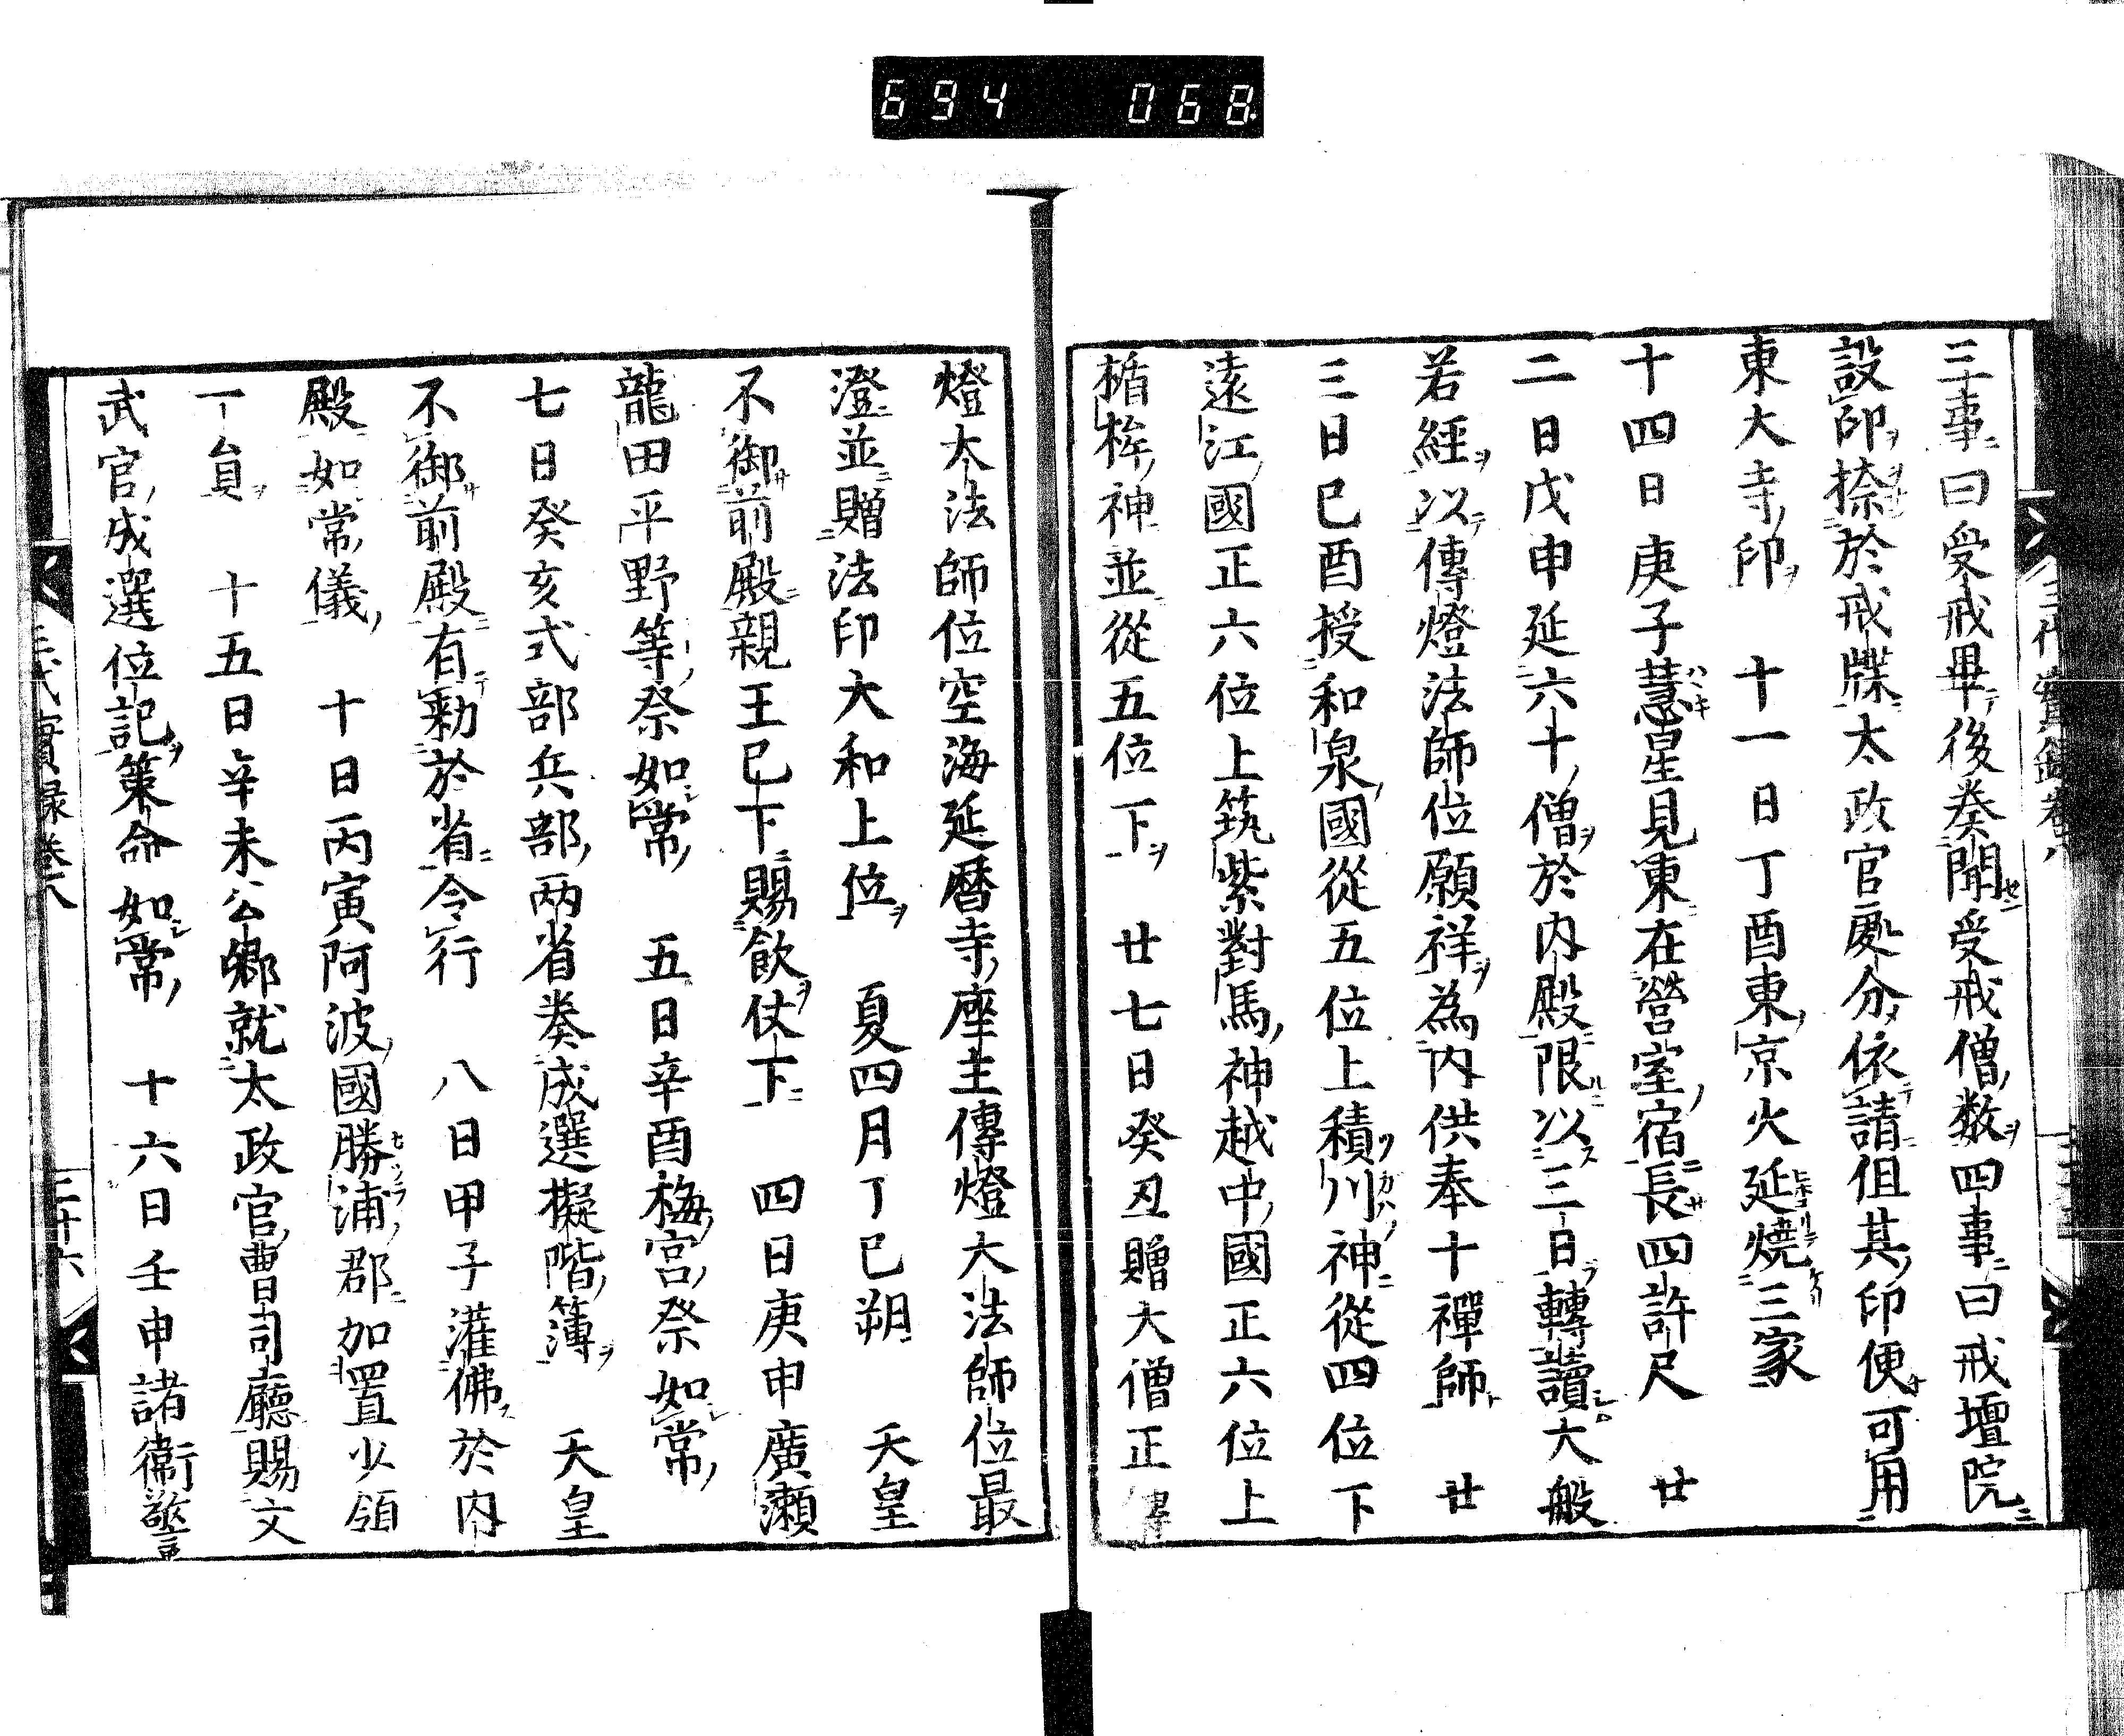 694 068
三事曰受戒畢後奏聞受戒僧數四事曰戒壇院
設印捺於戒牒太政官處分依請但其印便可用
東大寺印 十一日丁酉東京火延燒三家
十四日庚子慧星見東在營室宿長四許尺 廿
二日戊申延六十僧於内殿限以三日轉讀大般
若經以傳燈法師位願祥為内供奉十禪師 廿
三日己酉授和泉國從五位上積川神從四位下
遠江國正六位上筑紫對馬神越中國正六位上
楯桙神並從五位下 廿七日癸丑贈大僧正傳
燈大法師位空海延曆寺座主傳燈大法師位最
澄並贈法印大和上位 夏四月丁巳朔 天皇
不御前殿親王已下賜飲仗下 四日庚申廣瀨
龍田平野等祭如常 五日辛酉梅宮祭如常
七日癸亥式部兵部两省奏成選擬階簿 天皇
不御前殿有勅於省令行 八日甲子灌佛於内
殿如常儀 十日丙寅阿波國勝浦郡加置少領
一員 十五日辛未公卿就太政官曹司廳賜文
武官成選位記策命如常 十六日壬申諸衛警
三代實録卷八 二十六